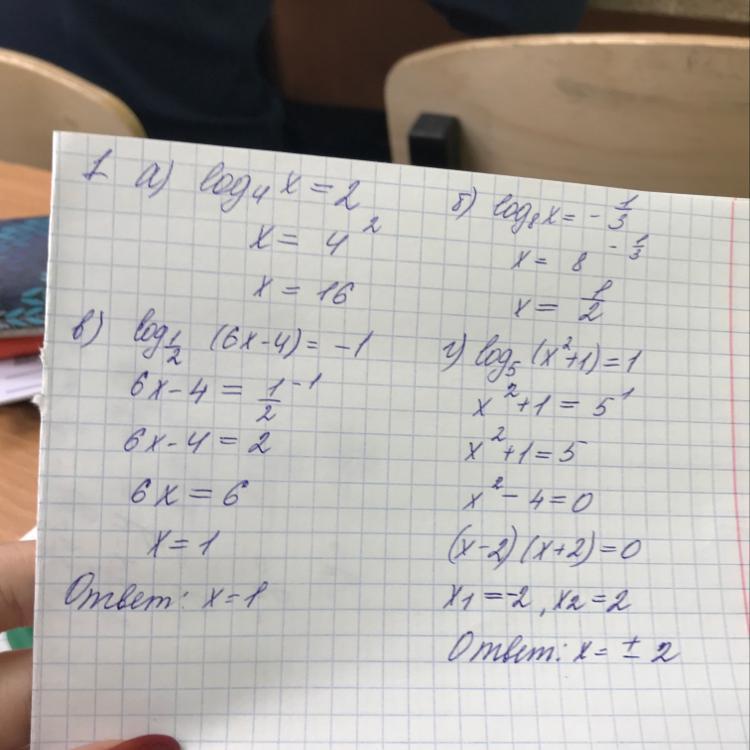 1 а) log₄ x = 2
x = 4²
x = 16
б) log₈ x = - 1/3
x = 8^(-1/3)
x = 1/2
в) log_(1/2) (6x-4) = -1
6x-4 = 1/2⁻¹
6x-4 = 2
6x = 6
x = 1
Ответ: x=1
г) log₅ (x²+1) = 1
x²+1 = 5¹
x²+1 = 5
x²-4=0
(x-2)(x+2)=0
x₁ =-2, x₂ = 2
Ответ: x = ± 2